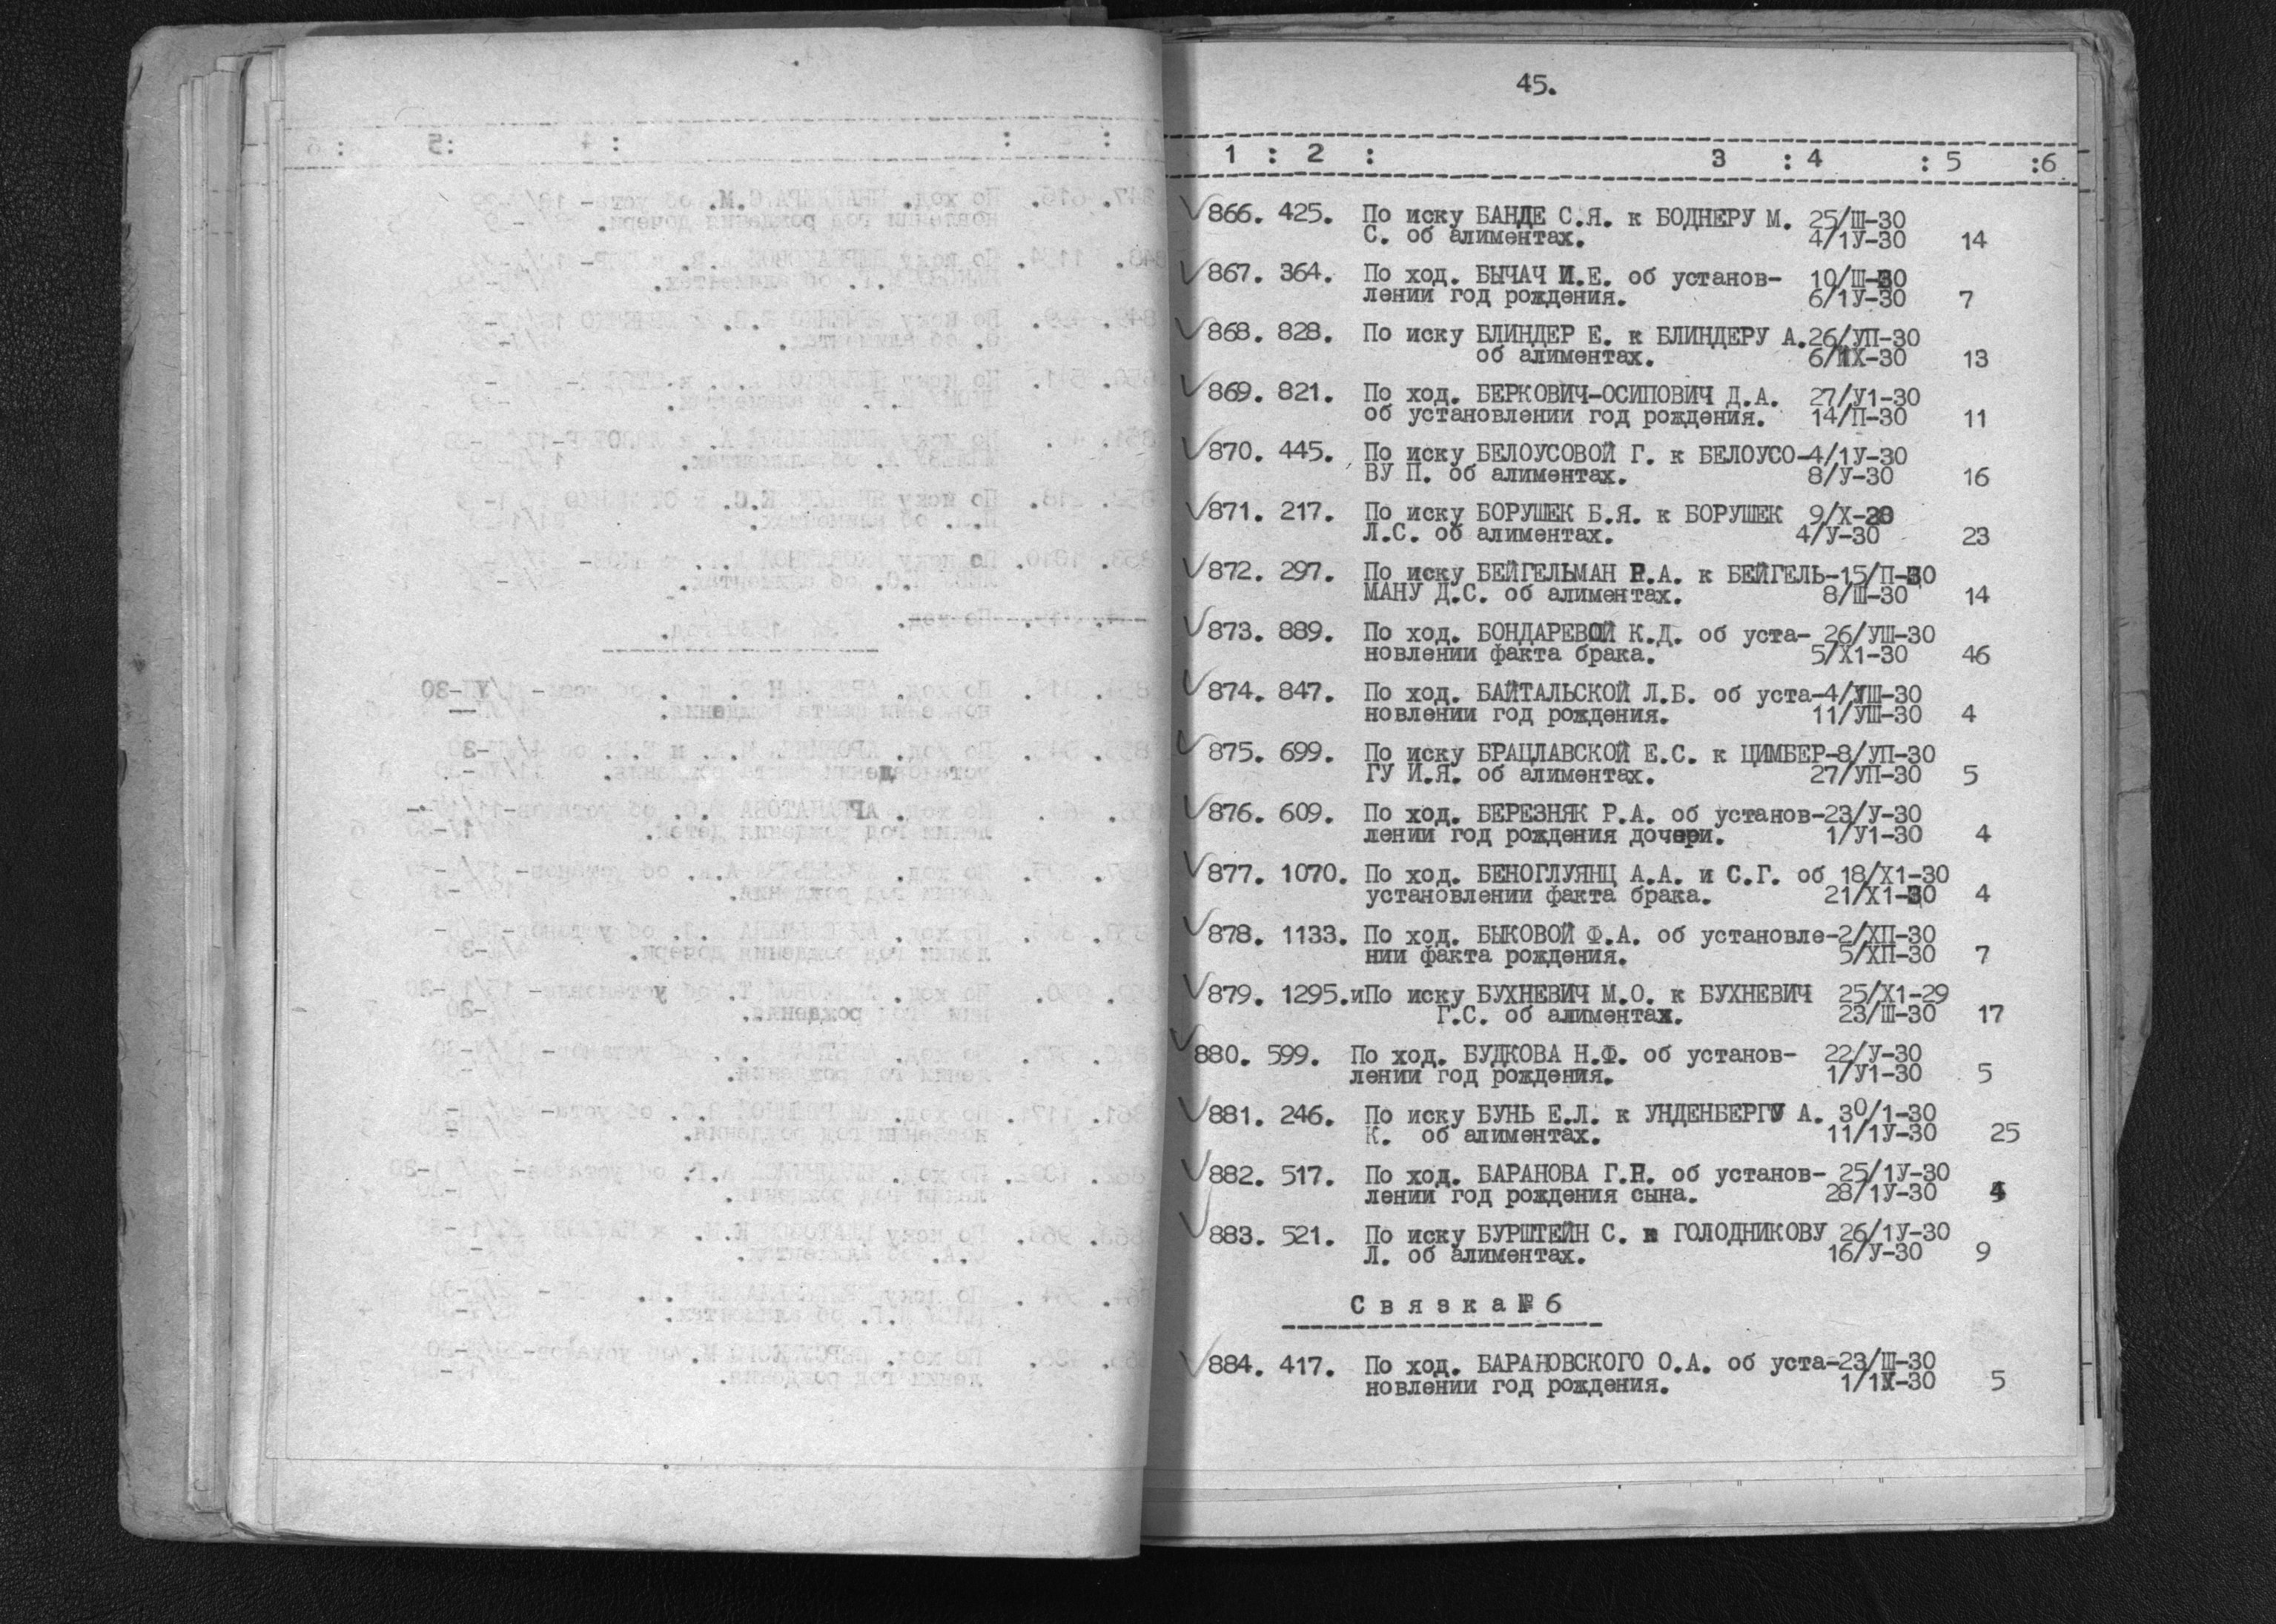 45.
1 : 2 : 3 : 4 : 5 :6
866. 425. По иску БАНДЕ С.Я. к БОДНЕРУ М. 25/Ш-30
С. об алиментах. 4/1У-30 14
867. 364. По ход. БЫЧАЧ И.Е. об установ- 10/Ш-30
лении год рождения. 6/1У-30 7
868. 828. По иску БЛИНДЕР Е. к БЛИНДЕРУ А.26/УП-30
об алиментах. 6/IХ-30 13
869. 821. По ход. БЕРКОВИЧ-ОСИПОВИЧ Д.А. 27/У1-30
об установлении год рождения. 14/П-30 11
870. 445. По иску БЕЛОУСОВОЙ Г. к БЕЛОУСО-4/1У-30
ВУ П. об алиментах. 8/У-30 16
871. 217. По иску БОРУШЕК Б.Я. к БОРУШЕК 9/Х-28
Л.С. об алиментах. 4/У-30 23
872. 297. По иску БЕЙГЕЛЬМАН Р.А. к БЕЙГЕЛЬ-15/П-30
МАНУ Д.С. об алиментах. 8/Ш-30 14
873. 889. По ход. БОНДАРЕВОЙ К.Д. об уста- 26/УШ-30
новлении факта брака. 5/Х1-30 46
874. 847. По ход. БАЙТАЛЬСКОЙ Л.Б. об уста-4/УШ-30
новлении год рождения. 11/УШ-30 4
875. 699. По иску БРАЦЛАВСКОЙ Е.С. к ЦИМБЕР-8/УП-30
ГУ И.Я. об алиментах. 27/УП-30 5
876. 609. По ход. БЕРЕЗНЯК Р.А. об установ-23/У-30
лении год рождения дочери. 1/У1-30 4
877. 1070. По ход. БЕНОГЛУЯНЦ А.А. и С.Г. об 18/Х1-30
установлении факта брака. 21/Х1-30 4
878. 1133. По ход. БЫКОВОЙ Ф.А. об установле-2/ХП-30
нии факта рождения. 5/ХП-30 7
879. 1295.иПо иску БУХНЕВИЧ М.О. к БУХНЕВИЧ 25/Х1-29
Г.С. об алиментах. 23/Ш-30 17
880. 599. По ход. БУДКОВА Н.Ф. об установ- 22/У-30
лении год рождения. 1/У1-30 5
881. 246. По иску БУНЬ Е.Л. к УНДЕНБЕРГУ А. 30/1-30
К. об алиментах. 11/1У-30 25
882. 517. По ход. БАРАНОВА Г.Н. об установ- 25/1У-30
лении год рождения сына. 28/1У-30 4
883. 521. По иску БУРШТЕЙН С. к ГОЛОДНИКОВУ 26/1У-30
Л. об алиментах. 16/У-30 9
С в я з к а № 6
884. 417. По ход. БАРАНОВСКОГО О.А. об уста-23/Ш-30
новлении год рождения. 1/1Х-30 5